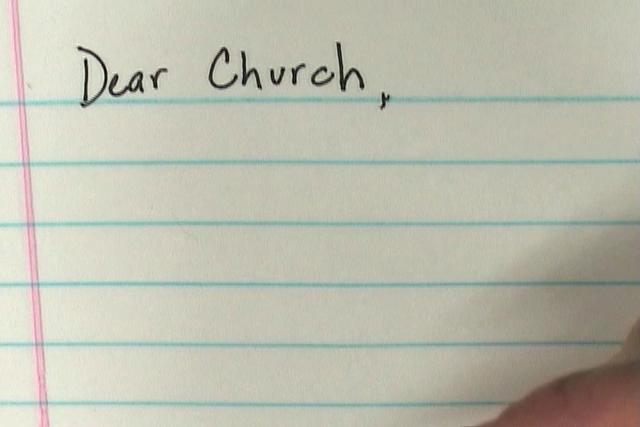 Dear Church,